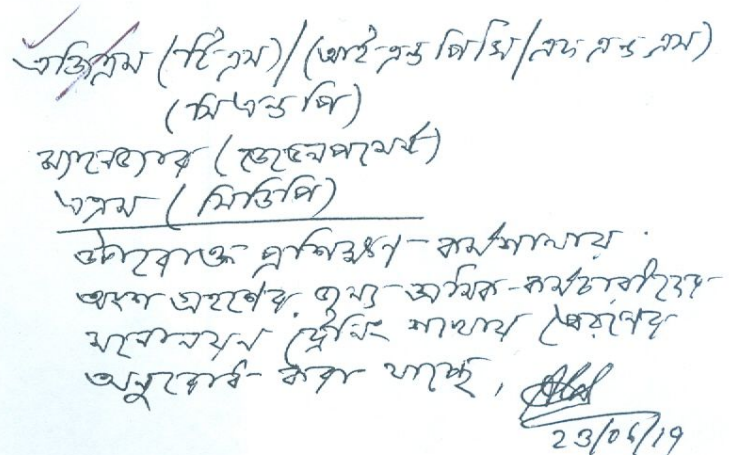 এজিএম (টিএম)/(আইএন্ডপিসি/এইচএন্ডএস)
(সিএন্ডপি)
ম্যানেজার (ডেভেলপমেন্ট)
এএম (সিডিপি)
উপরোক্ত প্রশিক্ষণ-কর্মশালায়
অংশ গ্রহণের জন্য শ্রমিক-কর্মচারীদের
মনোনয়ন ট্রেনিং শাখায় প্রেরণের
অনুরোধ করা যাচ্ছে,
23/06/19